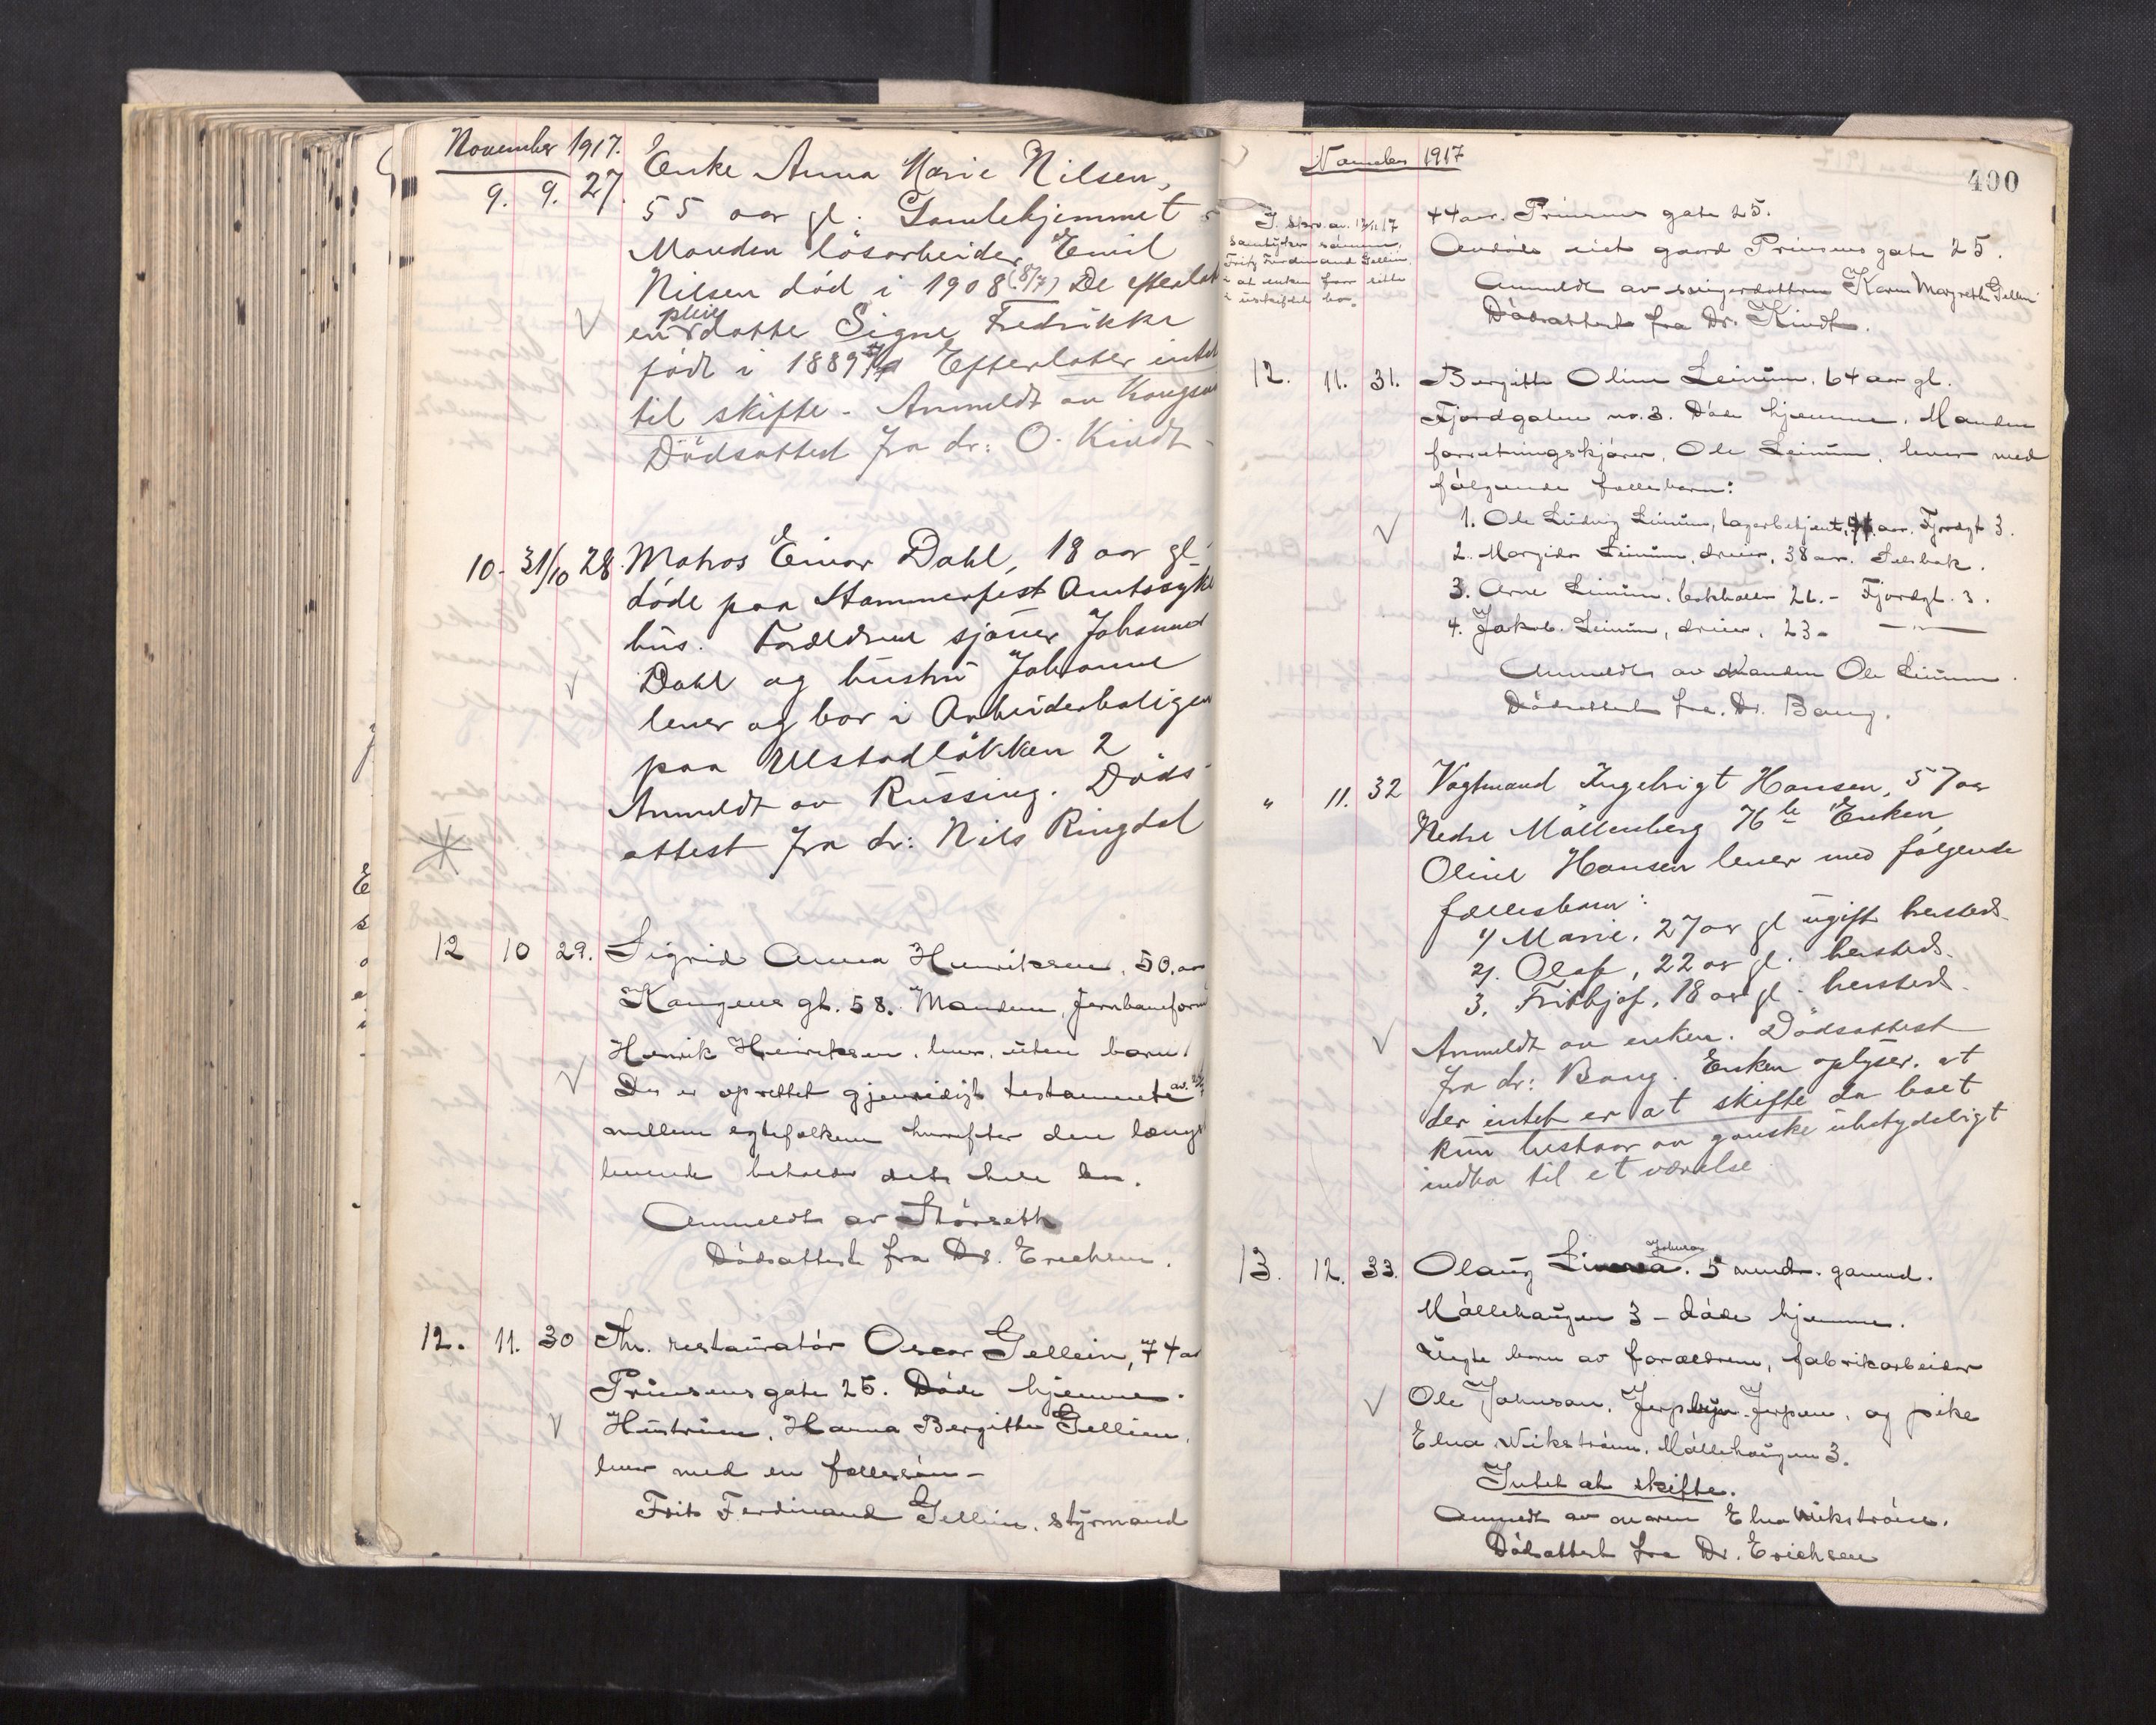 November 1917.
9. 9. 27. Enke Anna Marie Nilsen,
55 aar gl. Gamlehjemmet
Manden løsarbeider Emil
Nilsen død i 1908 (8/7) De efterlot
en pleie datter Signe Fredrikke
født i 1889 Efterlater intet
til skifte. Anmeldt av
Dødsattest fra dr: O. Kindt
10. 31/10 28. Matros Einar Dahl, 18 aar gl
døde paa Hammerfest Amtssyke
hus. Forældrene sjøuer Johan
Dahl og hustru Johanne
lever og bor i Arbeiderboliger
paa Ulstadløkken 2
Anmeldt av Russing. Døds
attest fra dr: Nils Ringdal
12 10 29. Sigrid Anna Henriksen, 50. aar
Kongens gt. 58. Manden, Jernbaneform
Henrik Henriksen. lever. uten barn.
Der er oprettet gjensidigt testamente av
mellem egtefolkene hvorefter den længst
levende beholder det hele bo.
Anmeldt av Størseth
Dødsattest fra Dr. Erichsen.
12. 11. 30 Fhv. restauratør Oscar Gellein, 74 aar
Prinsensgate 25. Døde hjemme.
Hustruen, Hanna Bergitte Gellein,
lever med en fællessøn -
Frits Ferdinand Gellein, styrmand
November 1917
400
I skr. av. 12/11.17
samtykker sønnen,
Fritz Ferdinand Gellein
i at enken faar sitte
i uskiftet bo.
44 aar. Prinsens gate 25.
Avdøde eiet gaard Prinsens gate 25.
Anmeldt av svigerdatteren Karen Margrethe Gellein
Dødsattest fra Dr. Kindt.
12. 11. 31. Bergitte Oline Leinum. 64 aar gl.
Fjordgaten no. 3. Døde hjemme. Manden
forretningskjører, Ole Leinum, lever med
følgende fællesbarn:
1. Ole Ludvig Leinum, lagerbetjent, aar. Fjordgt 3.
2. Leinum, dreier, 38 aar. Selsbak.
3. Arne Leinum, 26. - Fjordgt. 3.
4. Jakob. Leinum, dreier, 23 - - " -
Anmeldt av Manden Ole Leinum.
Dødsattest fra. Dr. Bang.
" 11. 32 Vagtmand Ingebrigt Hansen, 57 aar
Nedre Møllenberg 76 b Enken
Oline Hansen lever med følgende
fællesbarn:
1) Marie, 27 aar gl ugift hersteds
2). Olaf, 22 aar gl. hersteds.
3. Frithjof, 18 aar gl. hersteds.
Anmeldt av enken. Dødsattest
fra dr: Bang. Enken oplyser, at
der intet er at skifte da boet
kun bestaar av ganske ubetydeligt
indbo til et værelse
13. 12. 33. Olaug Johnsen. 5 mndr. gammel.
Møllehaugen 3 - døde hjemme.
Uegte barn av forældrene, fabrikarbeider
Ole Johnsen, Jerpen, og pike
Elna Wikstrøm, Møllehaugen 3.
Intet at skifte.
Anmeldt av moren Elna Wikstrøm.
Dødsattest fra Dr. Erichsen